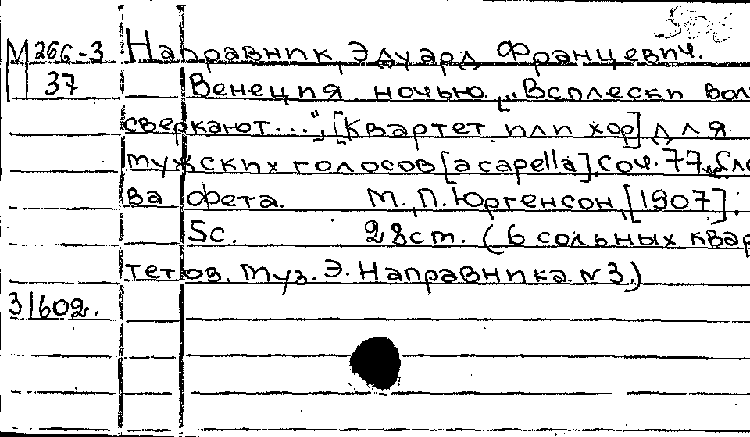 М 266-3 Направник, Эдуард Францевич.
37 Венеция ночью „Всплески вол
сверкают...", [Квартет или хор] для
мужских голосов [a capella]. Соч. 77. Сло
ва Фета. М., П. Юргенсон, [1907].
5с. 28см. (6 сольных квар
тетов. Муз. Э. Направника №3.)
31602.